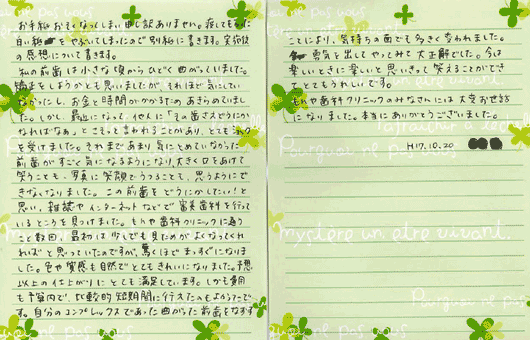 お手紙おそくなってしまい申し訳ありません。渡してもらった
白い紙をやぶいてしまったので別紙に書きます。実施後
の感想について書きます。
私の前歯は小さな頃からひどく曲がっていました。
矯正をしようかとも思いましたが、それほど気にしてい
なかったし、お金と時間がかかるためあきらめていまし
た。しかし、最近になって、他人に「その歯さえどうにか
なればなぁ。」とさえっと言われることがあり、とても
を受けました。それまであまり気にとめていなかった
前歯がすごく気になるようになり、大きく口をあけて
笑うことも、写真に笑顔でうつることも、思うようにで
きなくなりました。この前歯をどうにかしたい！と
思い、雑誌やインターネットなどで審美歯科を行って
いるところを見つけました。もんや歯科クリニックに通う
こと数回、最初は少しでも見ためがよくなってくれ
ればと思っていたのですが、驚くほどまっすぐになりま
した。色や質感も自然でとてもきれいになりました。予想
以上の仕上がりにとても満足しています。しかも費用
も予算内で、比較的短期間に行えたのもよかったで
す。自分のコンプレックスであった曲がった前歯をなおす
ことにより、気持ちの面でも大きく変われました。
勇気を出してやってみて大正解でした。今は
楽しいときに楽しいと思いきって笑えることができ
とてもうれしいです。
もんや歯科クリニックのみなさんには大変お世話
になりました。本当にありがとうございました。
H17.10.20
Pourquoi ne pas vous
Mystère un être vivant.